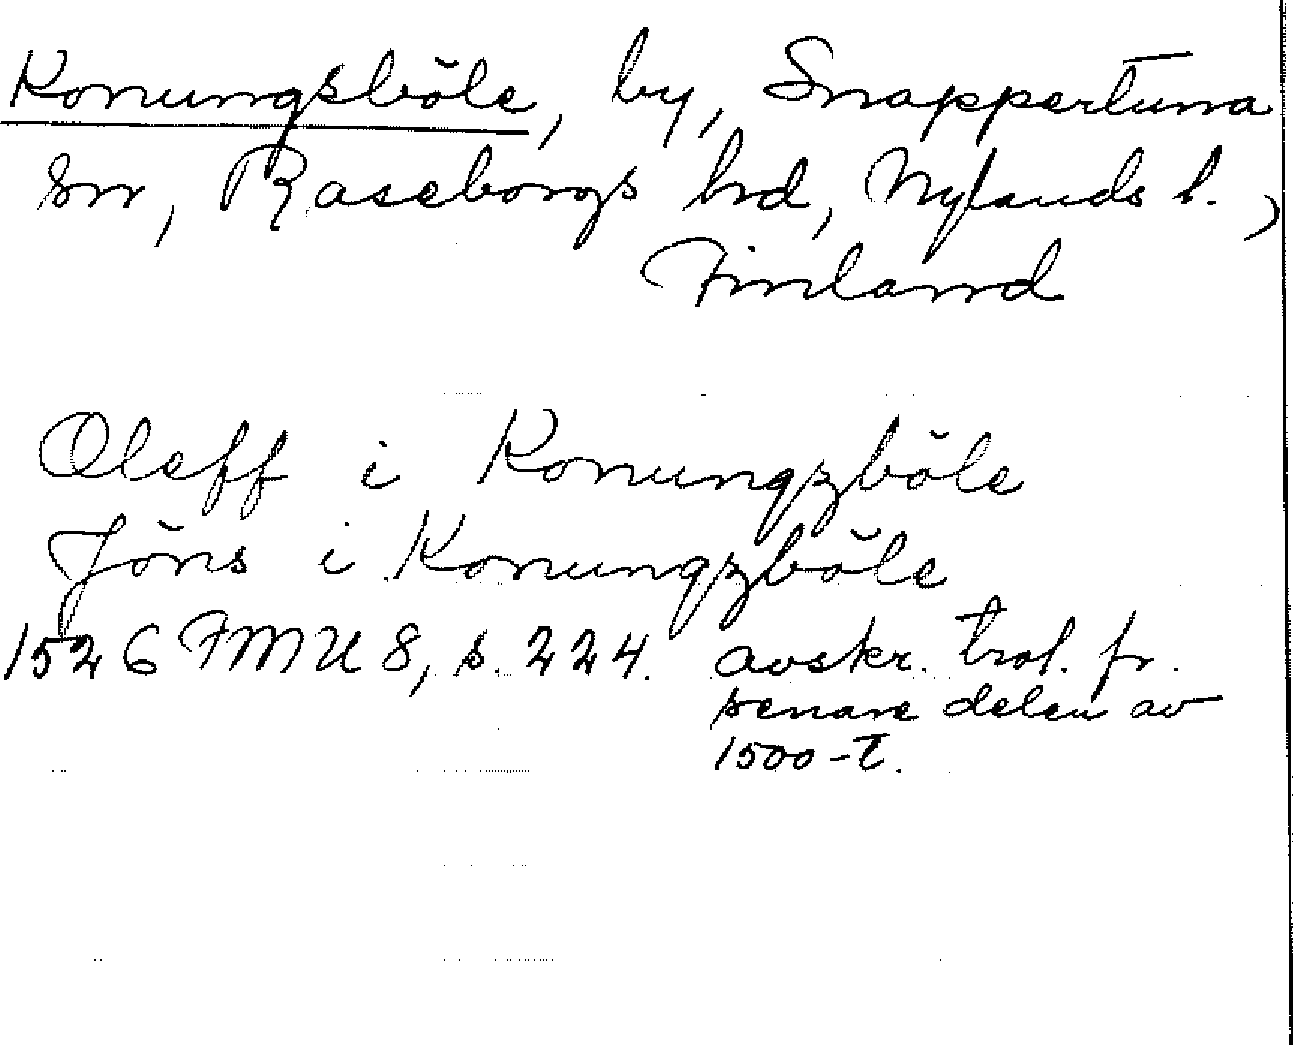 Konungsböle, by, Snappertuna
sn, Raseborgs hrd, Nylands l.,
Finland
Oleff i Konungzböle
Jöns i Konungzböle
1526 FMU 8, s. 224. avskr. trol. fr.
senare delen av
1500-t.